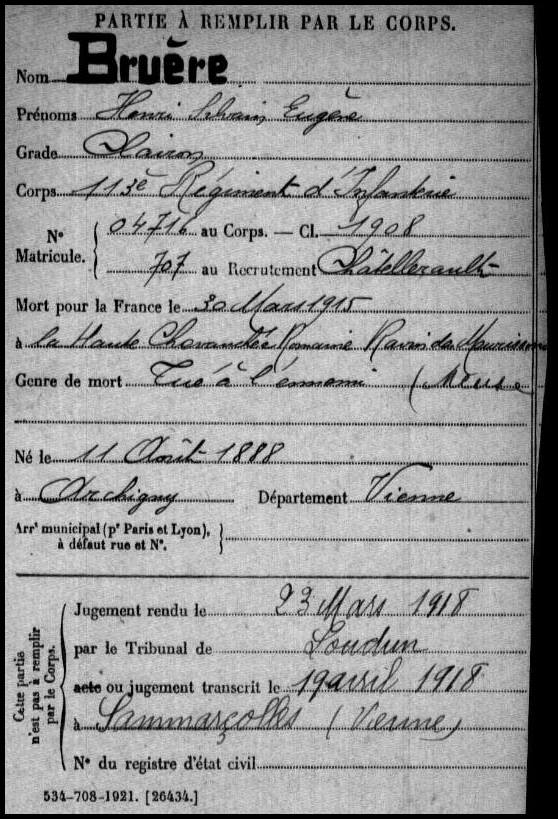 PARTIE À REMPLIR PAR LE CORPS.
Nom Bruère
Prénoms Henri Silvain Eugène
Grade Clairon
Corps 113e Régiment d'Infanterie
No Matricule. { 04716 au Corps. — Cl. 1908
707 au Recrutement Châtellerault
Mort pour la France le 30 Mars 1915
à la Haute Chevauchée Romaine Ravin des Meurissons
Genre de mort Tué à l'ennemi (Meuse
Né le 11 Août 1888
à Archigny Département Vienne
Arrt municipal (pr Paris et Lyon), à défaut rue et No. }
Cette partie n'est pas à remplir par le Corps.
Jugement rendu le 23 Mars 1918
par le Tribunal de Loudun
acte ou jugement transcrit le 19 avril 1918
à Sammarçolles (Vienne)
No du registre d'état civil
534-708-1921. [26434.]